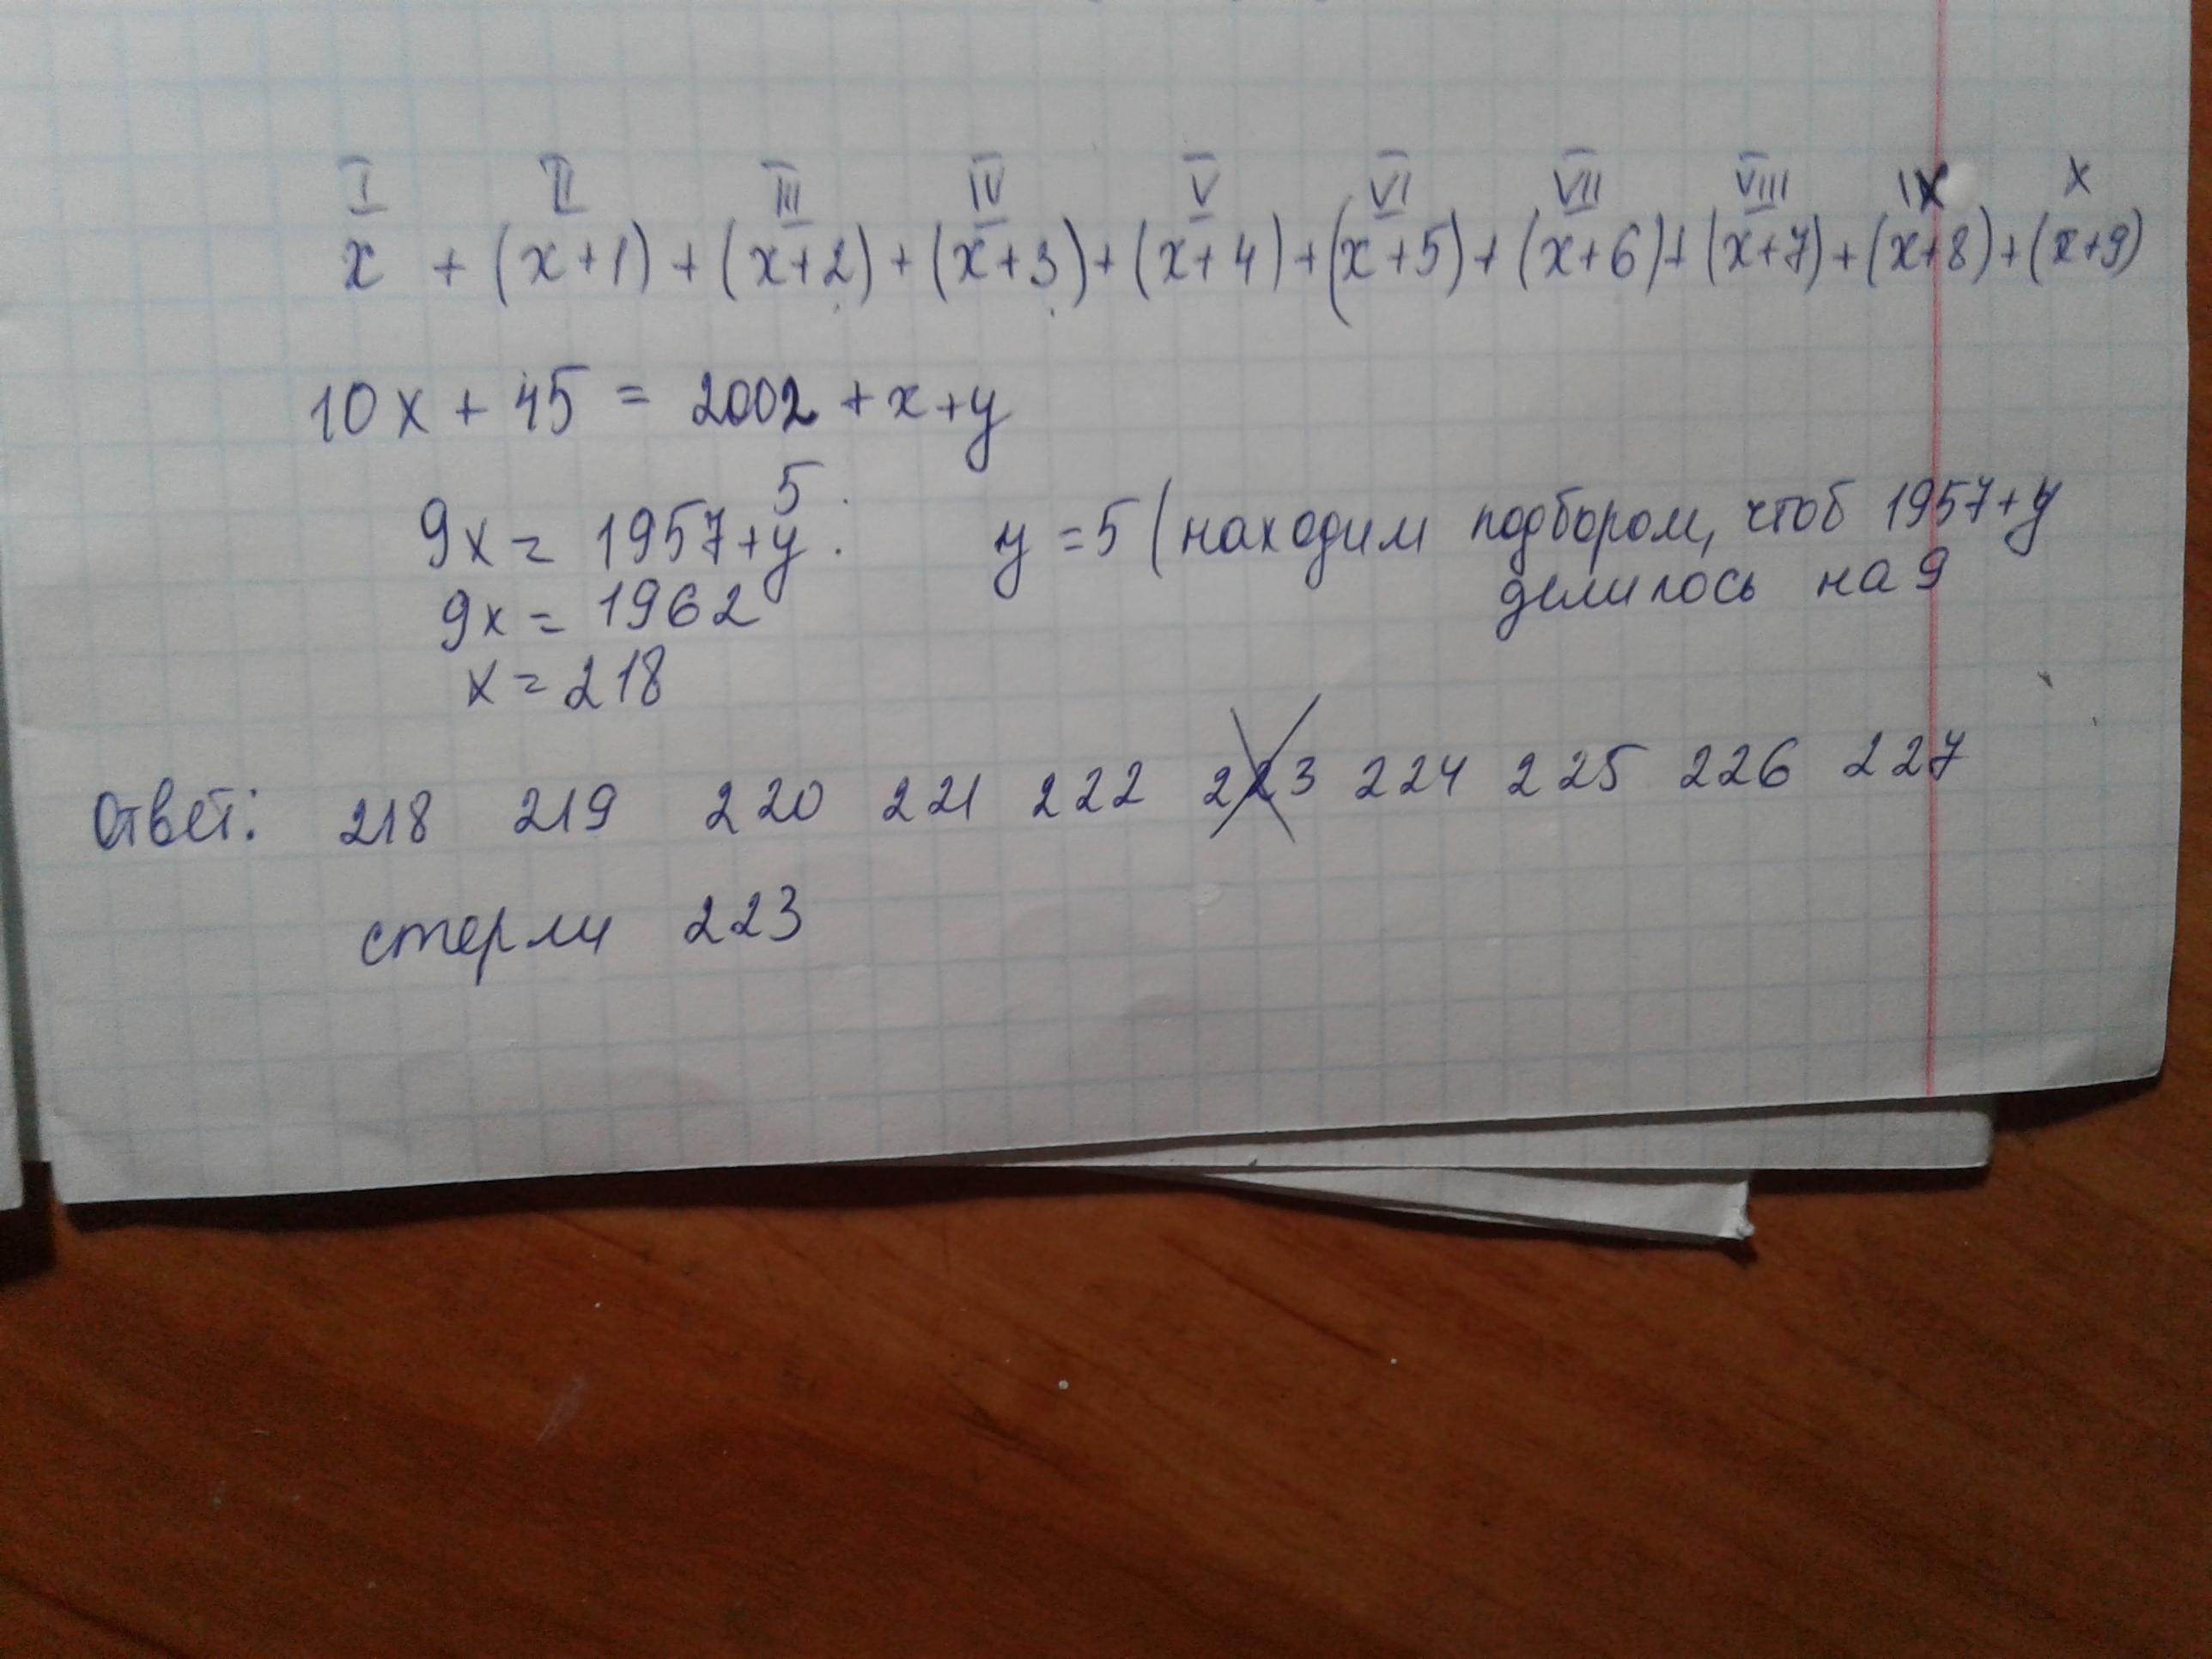 I II III IV V VI VII VIII IX X
x + (x+1) + (x+2) + (x+3) + (x+4) + (x+5) + (x+6) + (x+7) + (x+8) + (x+9)
10x + 45 = 2002 + x + y
5
9x = 1957 + y : y = 5 (находим подбором, чтоб 1957+y
делилось на 9
9x = 1962
x = 218
Ответ: 218 219 220 221 222 223 224 225 226 227
стерли 223